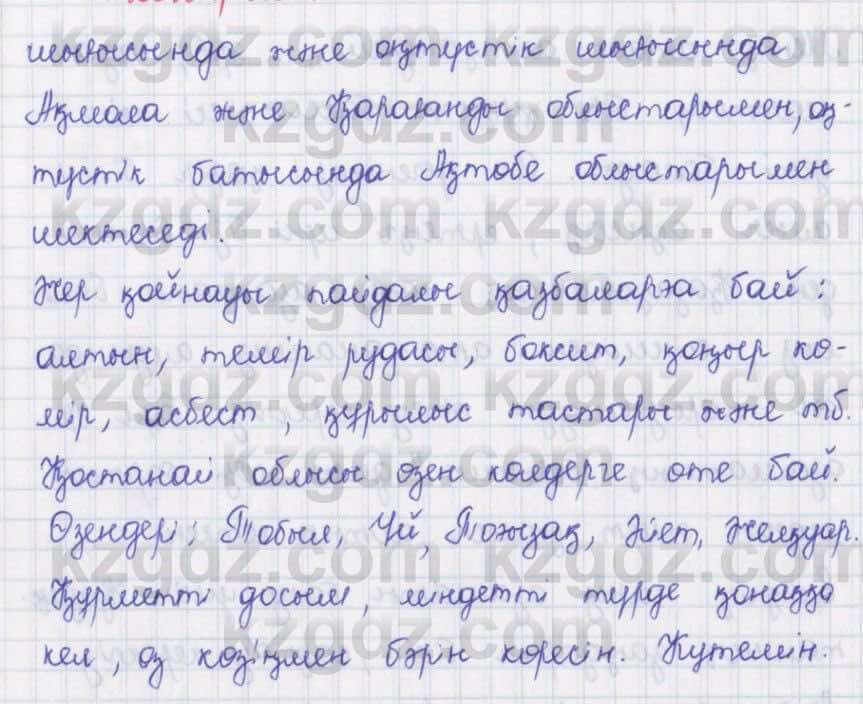 шығысында және оңтүстік шығысында
Ақмола және Қарағанды облыстарымен, оң-
түстік батысында Ақтөбе облыстарымен
шектеседі.
Жер қойнауы пайдалы қазбаларға бай:
алтын, темір рудасы, боксит, қоңыр кө-
мір, асбест, құрылыс тастары және тб.
Қостанай облысы өзен көлдерге өте бай.
Өзендері: Тобыл, Үй, Тоғызақ, Әйет, Желқуар.
Құрметті досым, міндетті түрде қонаққа
кел, өз көзіңмен бәрін көресін. Күтемін.
kzgdz.com